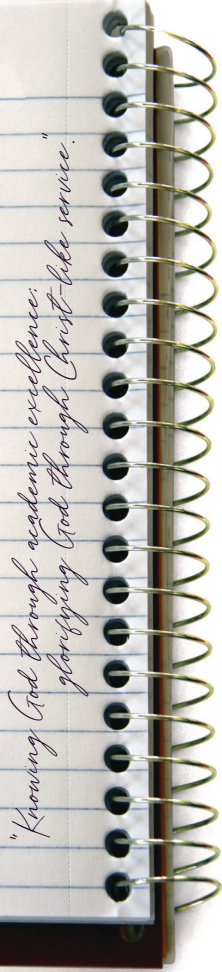 "Knowing God through academic excellence;
glorifying God through Christ-like service."